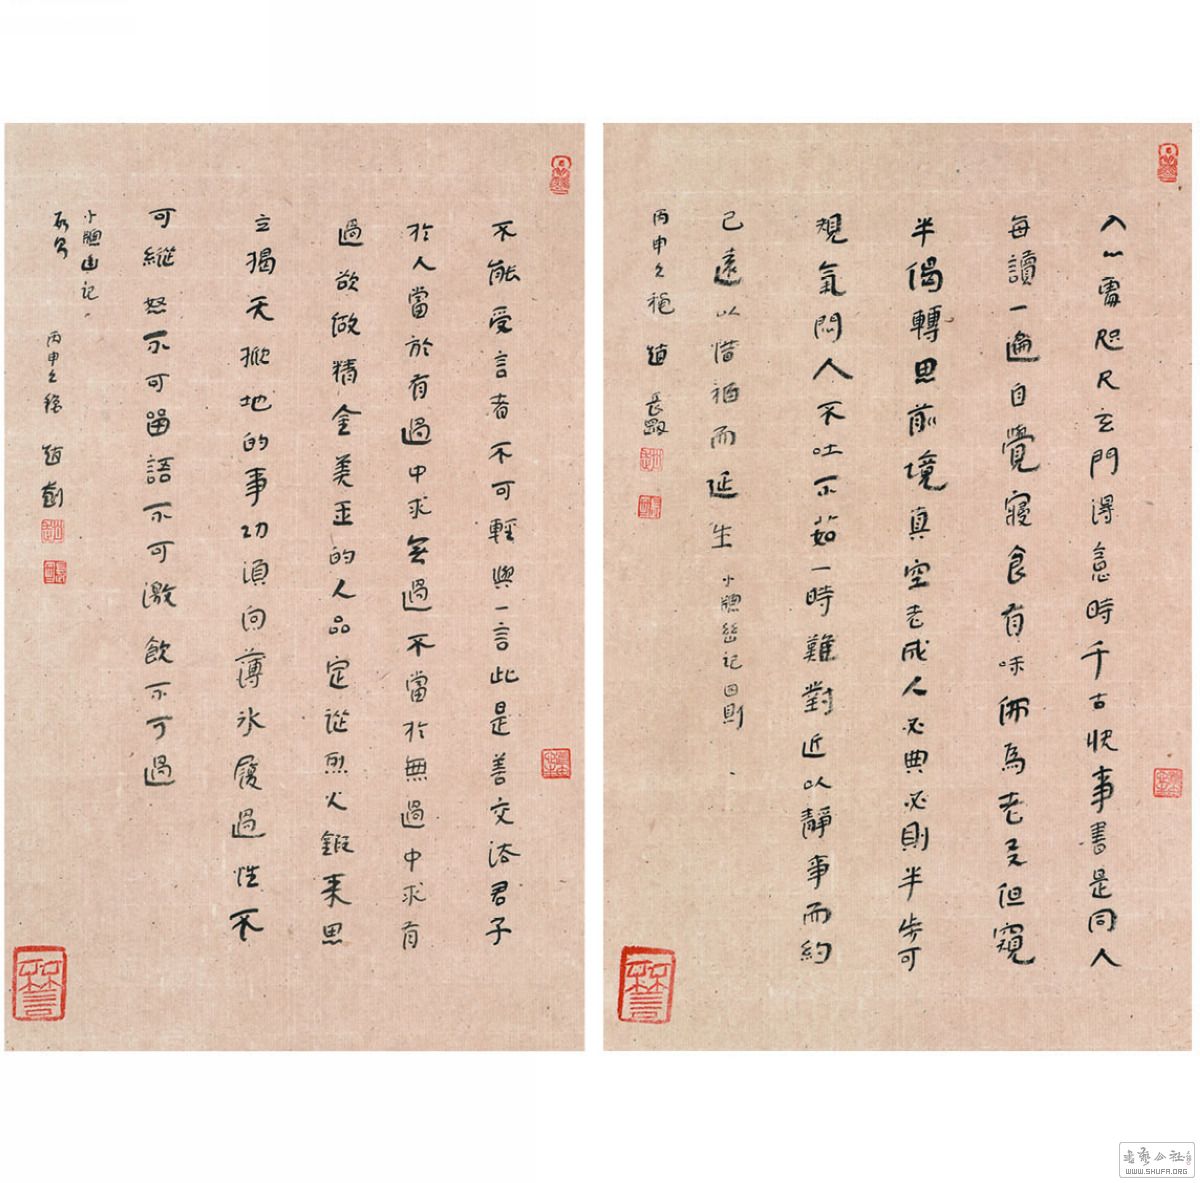 入心雷咫尺玄門得意時千古快事書是同人
每讀一遍自覺寢食有味佛為老友但窺
半偈轉思前境真空老成人必典必則半步可
規氣悶人不吐不茹一時難對近以靜事而約
己遠以惜福而延生
小窗幽記四則
丙申之秋 趙
不能受言者不可輕與一言此是善交法君子
於人當於有過中求無過不當於無過中求有
過欲做精金美玉的人品定從烈火鍛來思
立揭天掀地的事功須向薄冰履過性不
可縱怒不可留語不可激飲不可過
小窗幽記
丙申之秋 趙
書藝公社
WWW.SHUFA.ORG